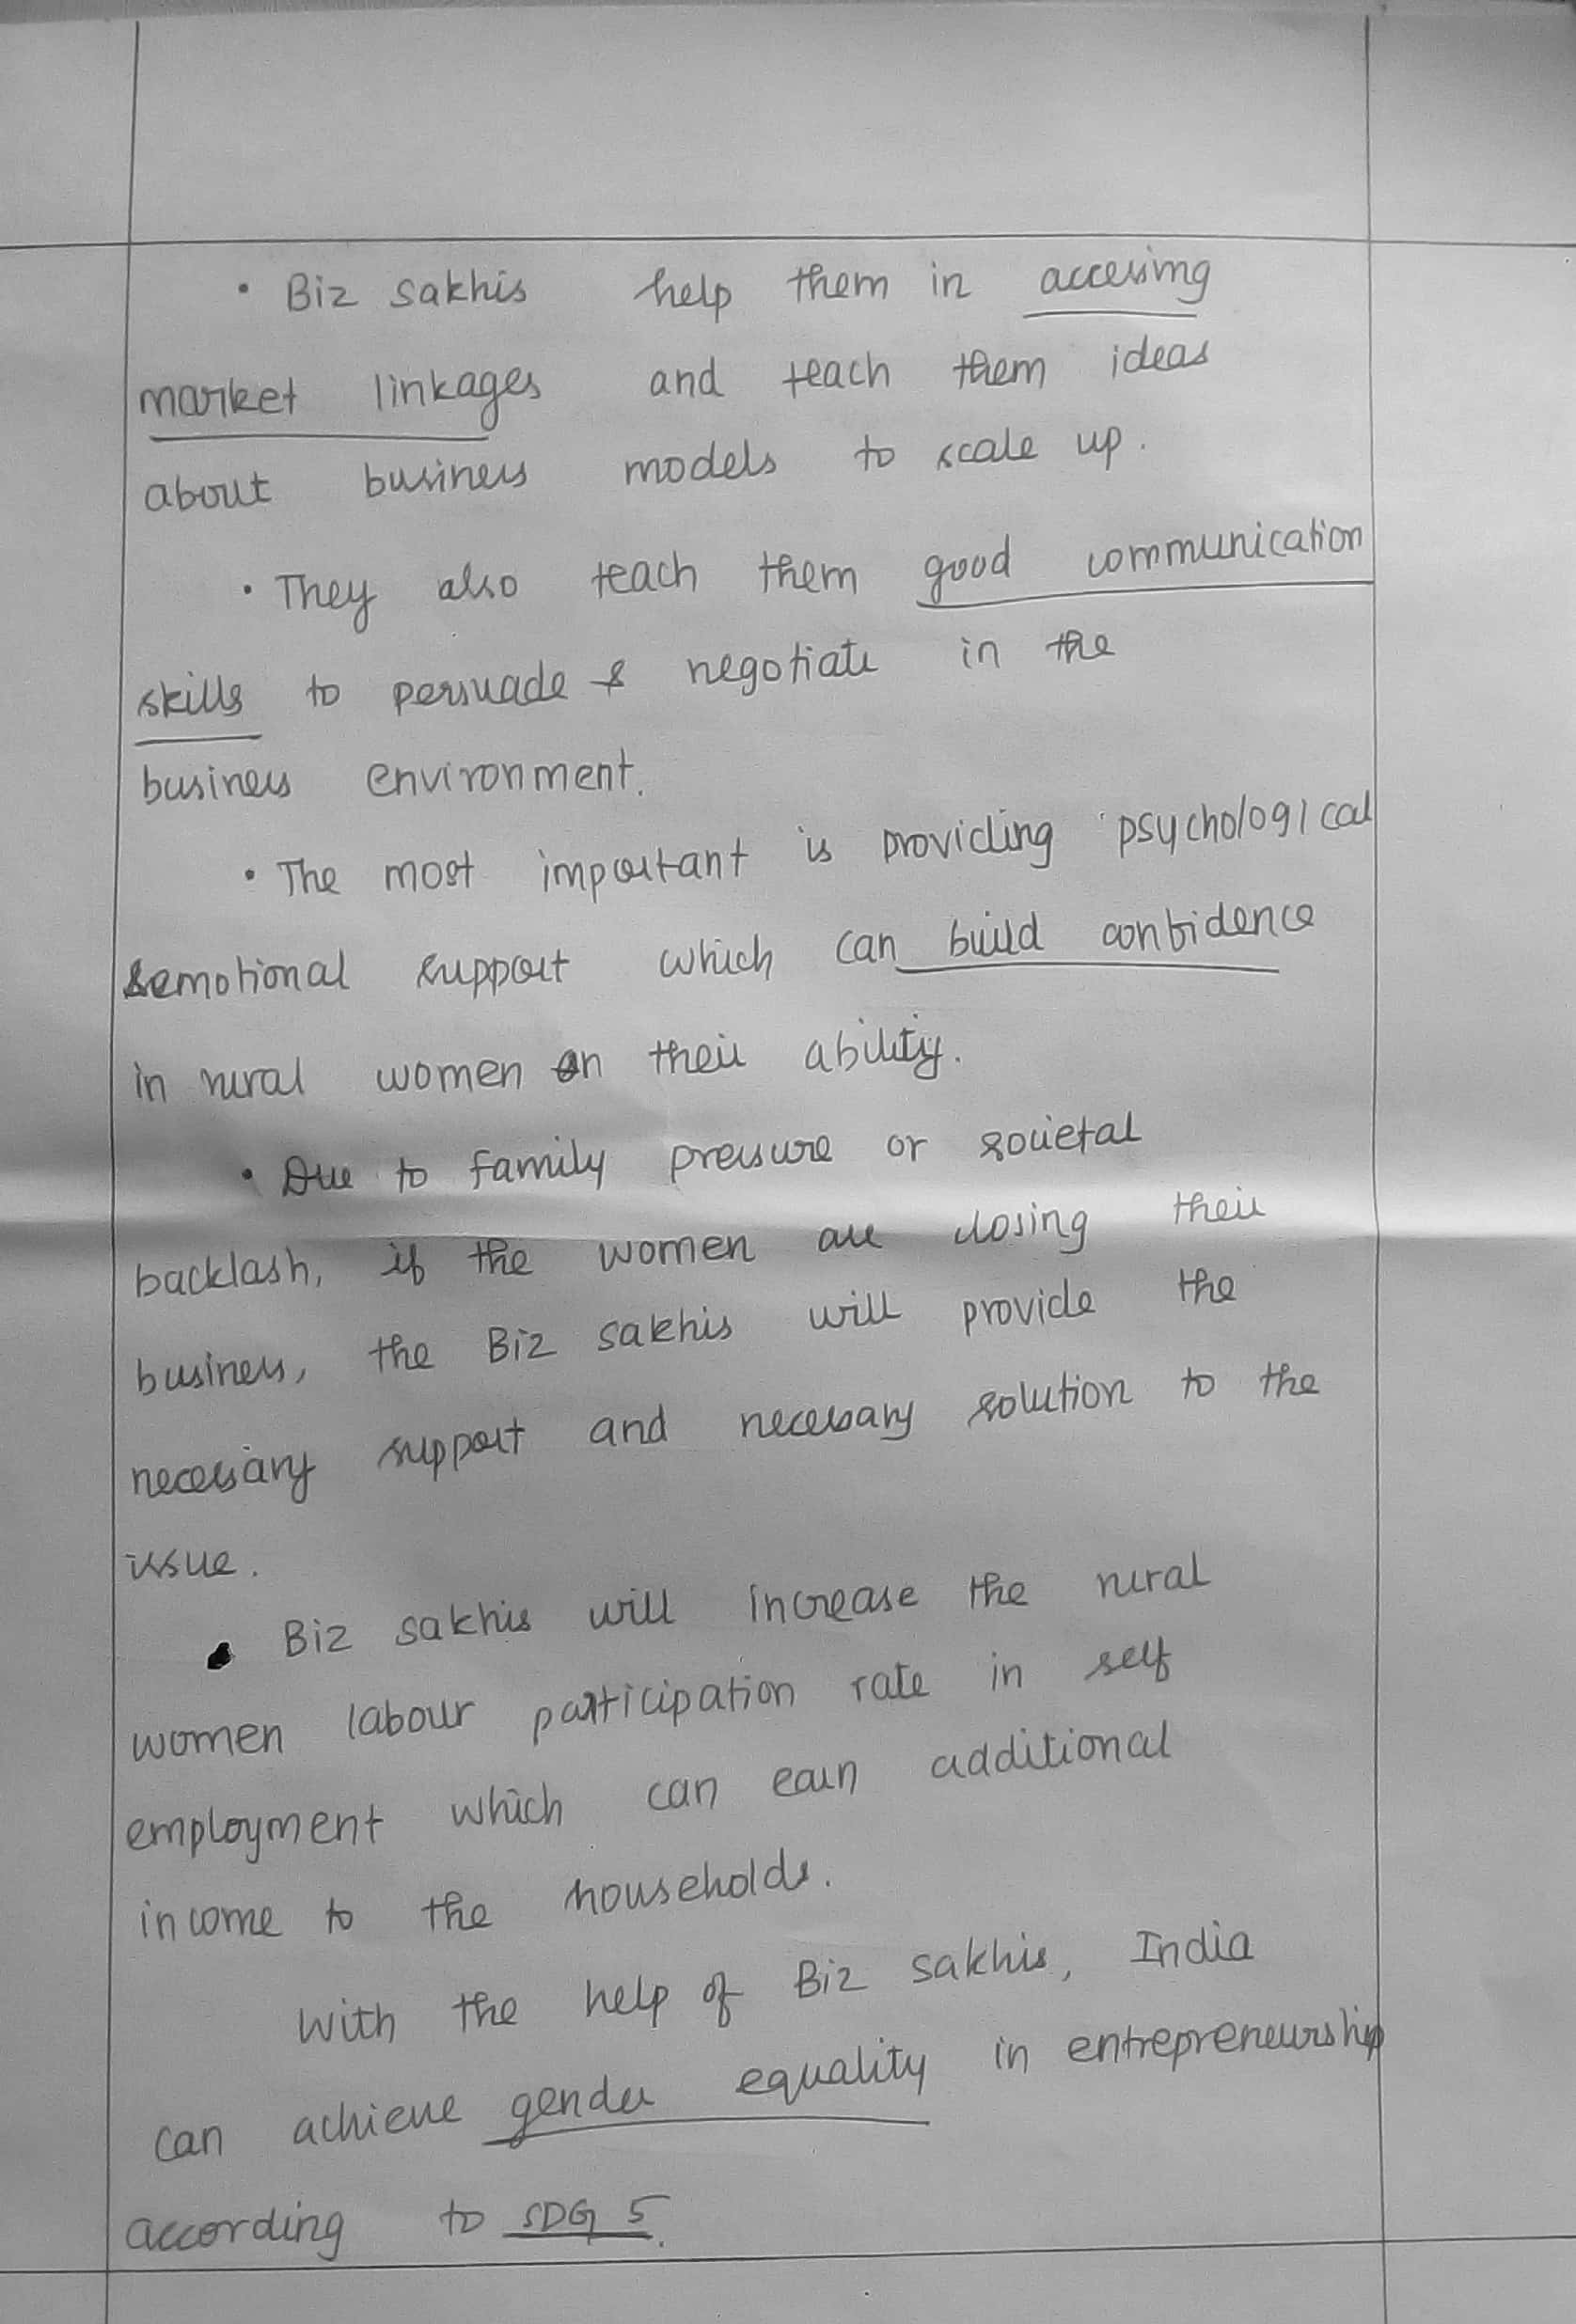 • Biz sakhis help them in accessing
market linkages and teach them ideas
about business models to scale up.
• They also teach them good communication
skills to persuade & negotiate in the
business environment.
• The most important is providing psychological
& emotional support which can build confidence
in rural women on their ability.
• Due to family pressure or societal
backlash, if the women are closing their
business, the Biz sakhis will provide the
necessary support and necessary solution to the
issue.
• Biz sakhis will increase the rural
women labour participation rate in self
employment which can earn additional
income to the households.
With the help of Biz sakhis, India
can achieve gender equality in entrepreneurship
according to SDG 5.